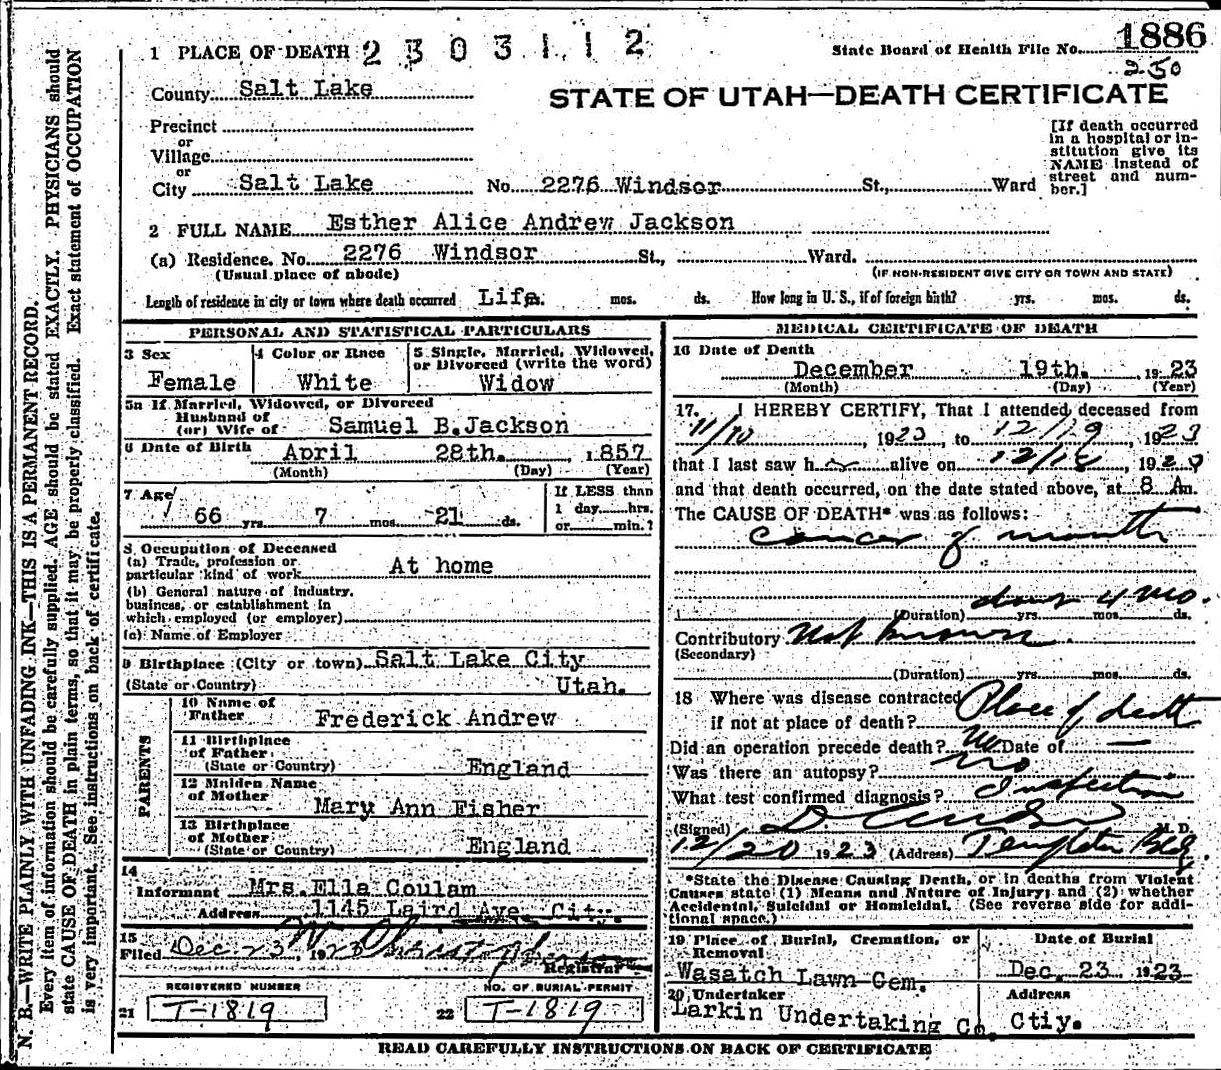 1 PLACE OF DEATH 2303112
State Board of Health File No. 1886
250
County Salt Lake
STATE OF UTAH—DEATH CERTIFICATE
Precinct
or
Village
or
City Salt Lake No. 2276 Windsor St., Ward
[If death occurred
in a hospital or in-
stitution give its
NAME instead of
street and num-
ber.]
2 FULL NAME Esther Alice Andrew Jackson
(a) Residence. No. 2276 Windsor St., Ward.
(Usual place of abode) (IF NON-RESIDENT GIVE CITY OR TOWN AND STATE)
Length of residence in city or town where death occurred Life. mos. ds. How long in U. S., if of foreign birth? yrs. mos. ds.
PERSONAL AND STATISTICAL PARTICULARS
3 Sex
Female
4 Color or Race
White
5 Single, Married, Widowed,
or Divorced (write the word)
Widow
5a If Married, Widowed, or Divorced
Husband of
(or) Wife of Samuel B.Jackson
6 Date of Birth April 28th. , 1857
(Month) (Day) (Year)
7 Age
66 yrs. 7 mos. 21 ds.
If LESS than
1 day hrs.
or min.?
8 Occupation of Deceased
(a) Trade, profession or
particular kind of work At home
(b) General nature of Industry,
business, or establishment in
which employed (or employer)
(c) Name of Employer
9 Birthplace (City or town) Salt Lake City
(State or Country) Utah.
PARENTS
10 Name of
Father Frederick Andrew
11 Birthplace
of Father
(State or Country) England
12 Maiden Name
of Mother Mary Ann Fisher
13 Birthplace
of Mother
(State or Country) England
14
Informant Mrs.Ella Coulam
Address 1145 Laird Ave. City.
15
Filed Dec. 23, 1923
Registrar
REGISTERED NUMBER
21 T-1819
NO. OF BURIAL PERMIT
22 T-1819
MEDICAL CERTIFICATE OF DEATH
16 Date of Death
December 19th. , 1923
(Month) (Day) (Year)
17. I HEREBY CERTIFY, That I attended deceased from
11/10, 1923, to 12/19, 1923
that I last saw her alive on 12/18, 1923
and that death occurred, on the date stated above, at 8 Am.
The CAUSE OF DEATH* was as follows:
Cancer of mouth
(Duration) yrs. 4 mos. ds.
Contributory Not known
(Secondary)
(Duration) yrs. mos. ds.
18 Where was disease contracted
if not at place of death? Place of death
Did an operation precede death? No Date of —
Was there an autopsy? No
What test confirmed diagnosis? Inspection
(Signed) M. D.
12/20 1923 (Address) Templeton Bldg
*State the Disease Causing Death, or in deaths from Violent
Causes state (1) Means and Nature of Injury; and (2) whether
Accidental, Suicidal or Homicidal. (See reverse side for addi-
tional space.)
19 Place of Burial, Cremation, or
Removal
Wasatch Lawn Cem.
Date of Burial
Dec. 23, 1923
20 Undertaker
Larkin Undertaking Co.
Address
Ctiy.
READ CAREFULLY INSTRUCTIONS ON BACK OF CERTIFICATE
N. B.—WRITE PLAINLY WITH UNFADING INK—THIS IS A PERMANENT RECORD.
Every item of information should be carefully supplied. AGE should be stated EXACTLY. PHYSICIANS should
state CAUSE OF DEATH in plain terms, so that it may be properly classified. Exact statement of OCCUPATION
is very important. See instructions on back of certificate.